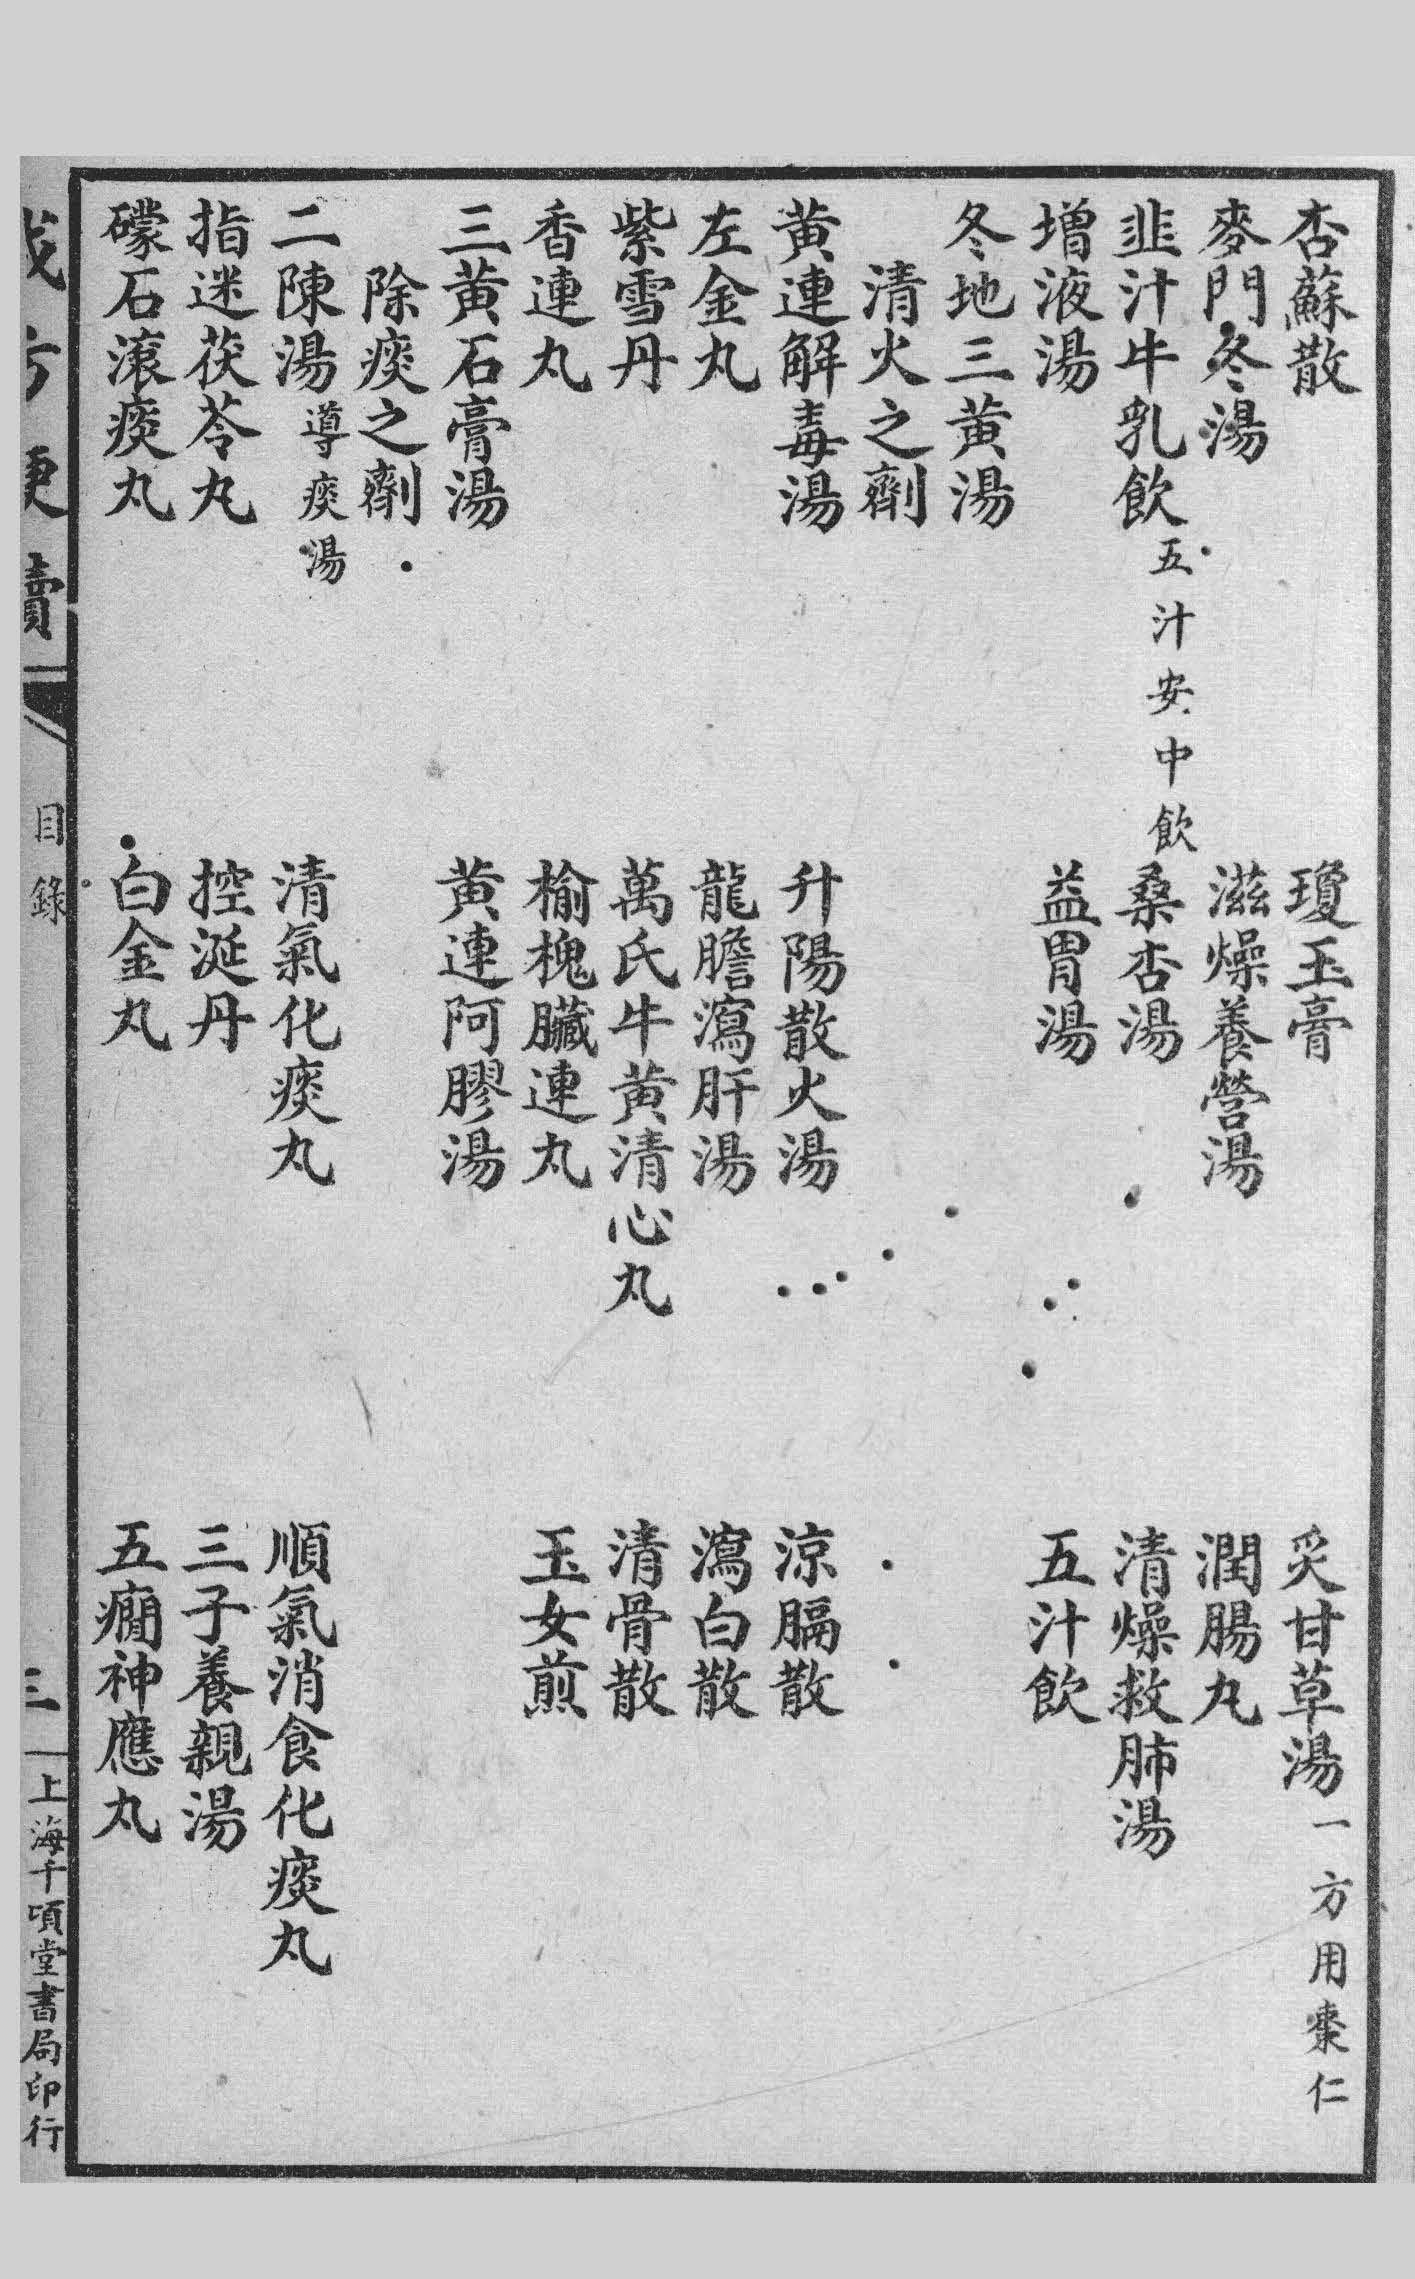 杏蘇散　瓊玉膏　炙甘草湯一方用棗仁
麥門冬湯　滋燥養營湯　潤腸丸
韭汁牛乳飲五汁安中飲　桑杏湯　清燥救肺湯
增液湯　益胃湯　五汁飲
冬地三黃湯
清火之劑
黃連解毒湯　升陽散火湯　涼膈散
左金丸　龍膽瀉肝湯　瀉白散
紫雪丹　萬氏牛黃清心丸　清骨散
香連丸　榆槐臟連丸　玉女煎
三黃石膏湯　黃連阿膠湯
除痰之劑
二陳湯導痰湯　清氣化痰丸　順氣消食化痰丸
指迷茯苓丸　控涎丹　三子養親湯
礞石滾痰丸　白金丸　五癇神應丸
成方便讀　目錄　三　上海千頃堂書局印行